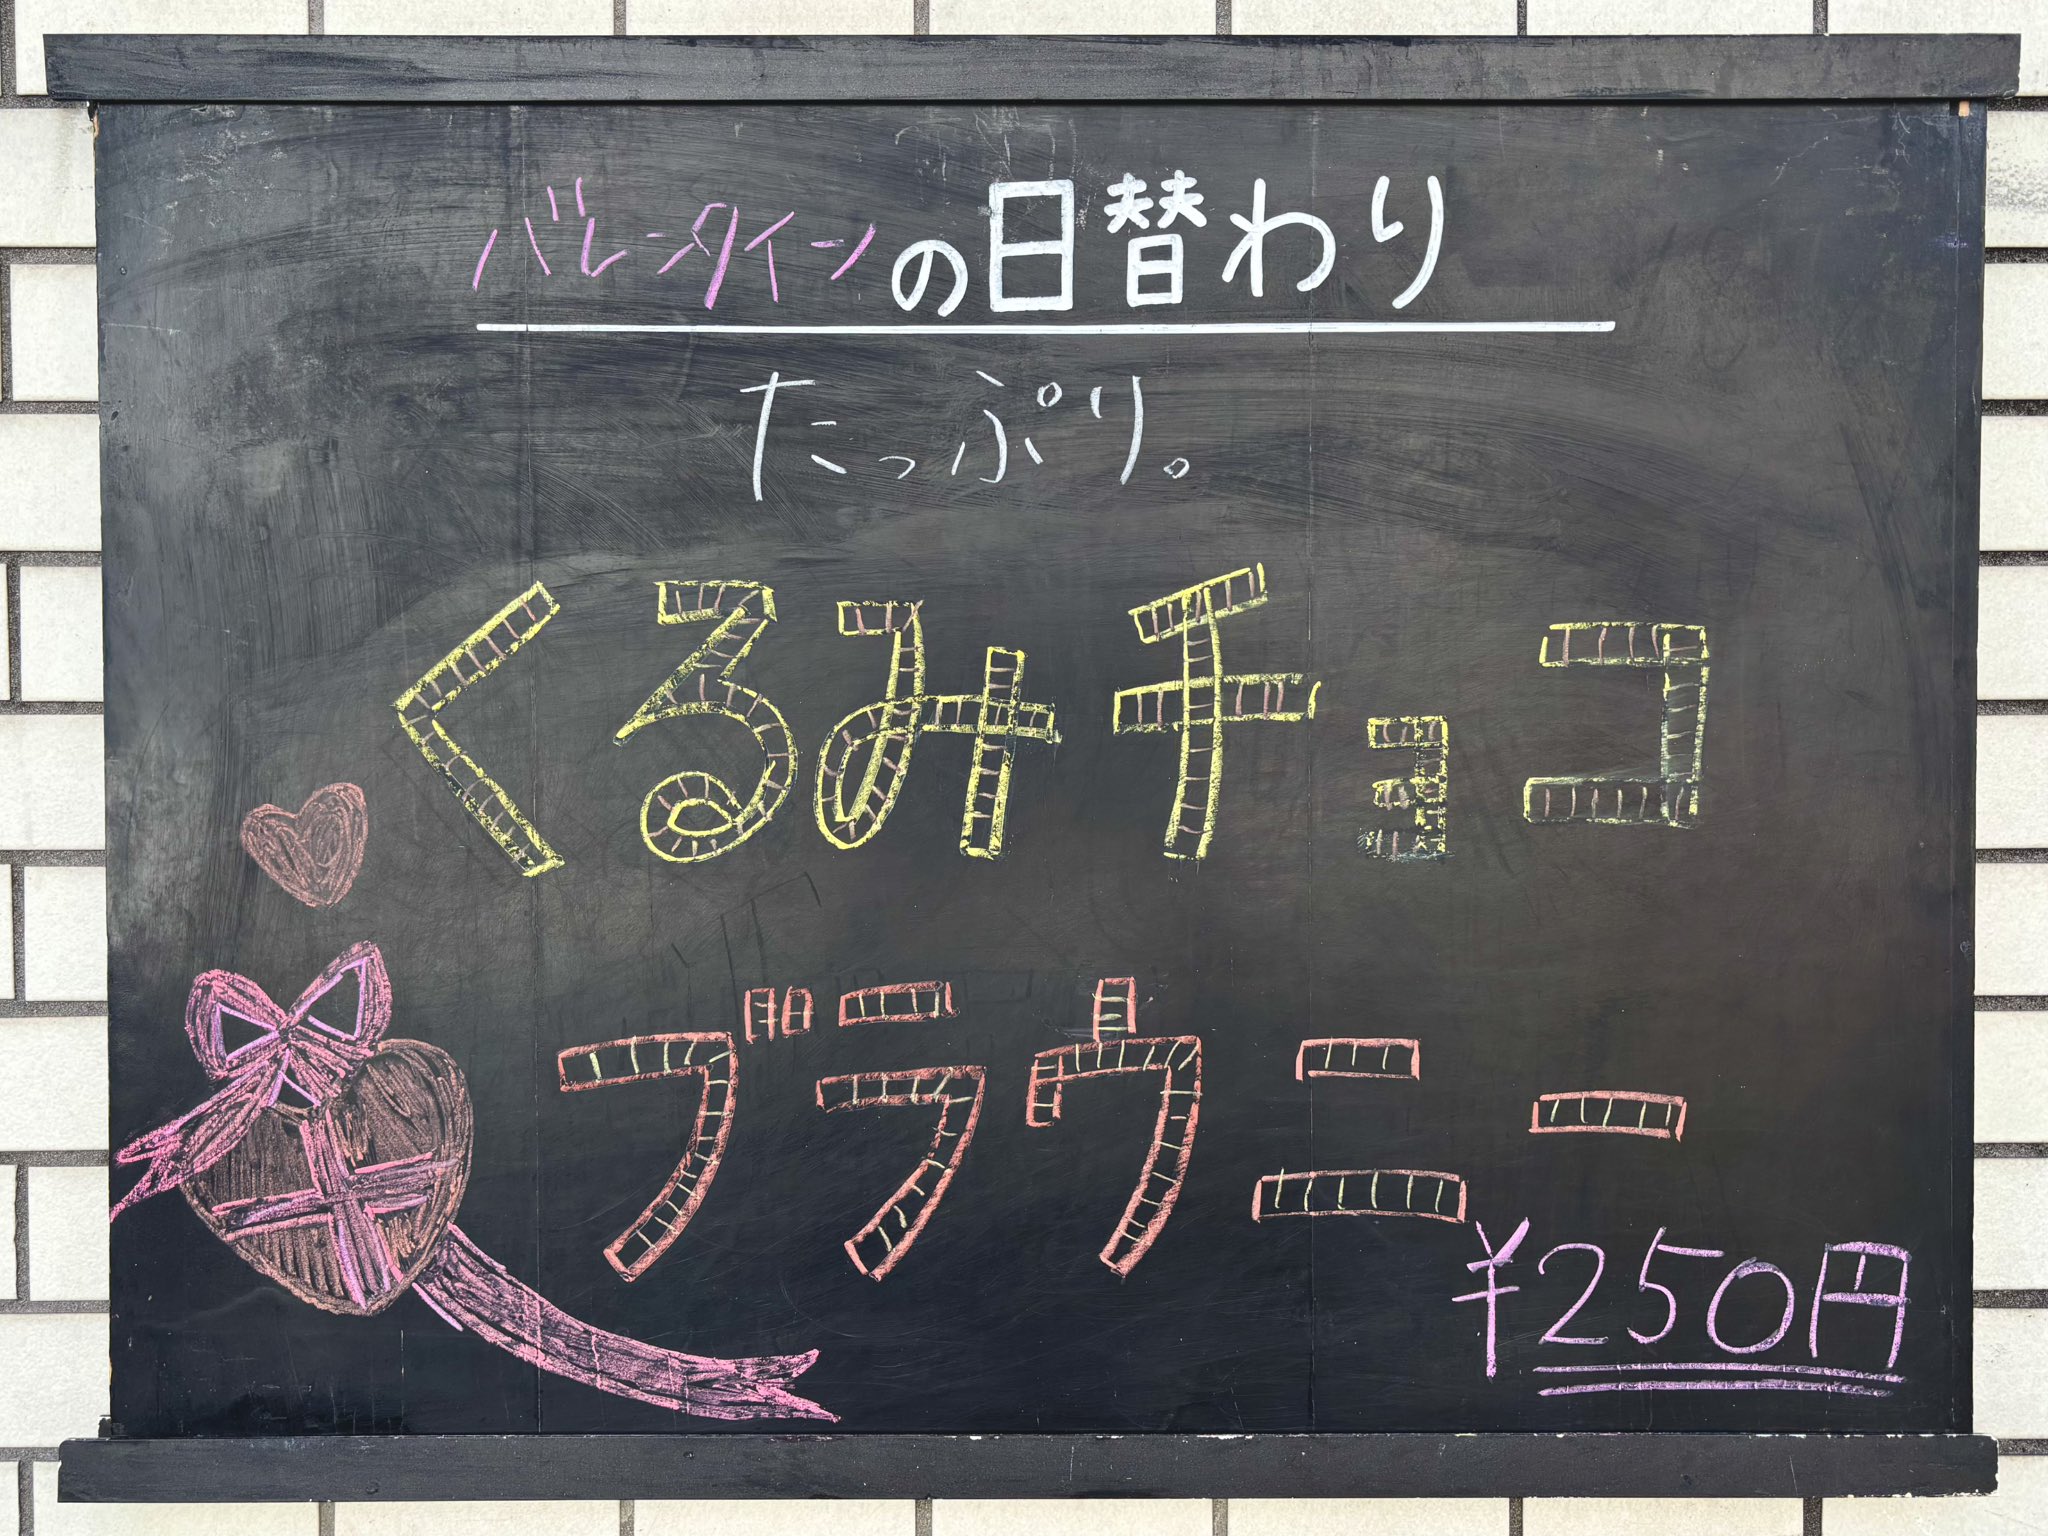 バレンタインの日替わり
たっぷり。
くるみチョコ
ブラウニー
¥250円